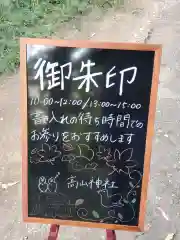 御朱印
10:00~12:00/13:00~15:00
書き入れの待ち時間での
お参りをおすすめします
高山神社